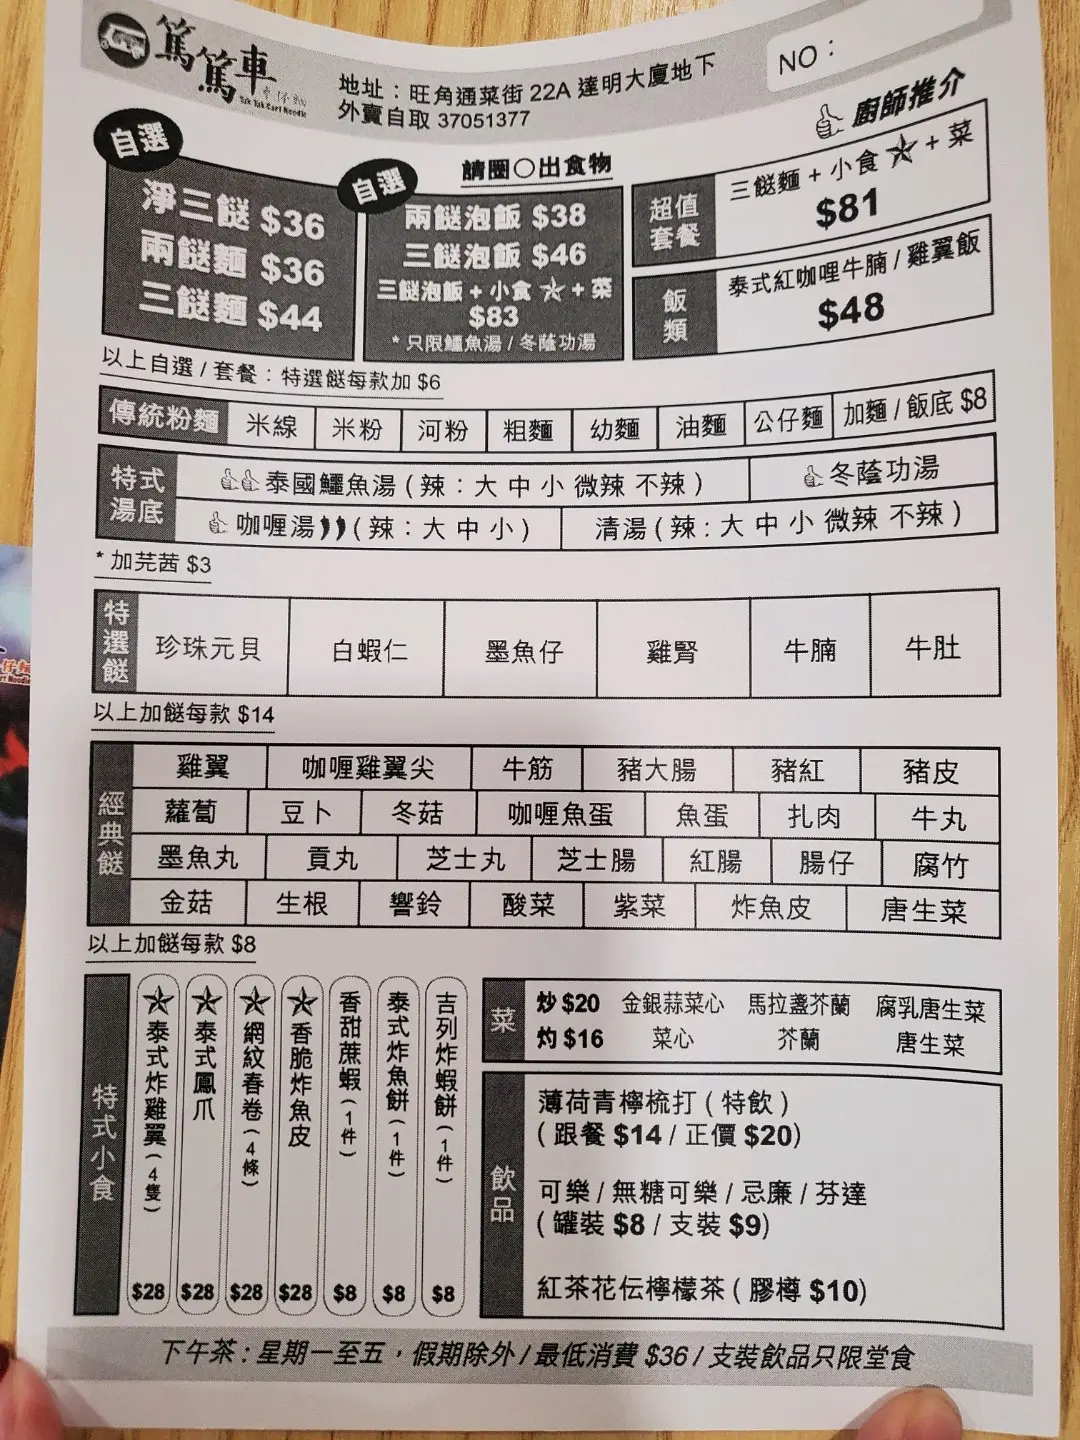 篤篤車
車仔麵
Tuk Tuk Cart Noodle
地址：旺角通菜街 22A 達明大廈地下
外賣自取 37051377
NO：
自選
淨三餸 $36
兩餸麵 $36
三餸麵 $44
請圈○出食物
自選
兩餸泡飯 $38
三餸泡飯 $46
三餸泡飯 + 小食 ☆ + 菜
$83
* 只限鱷魚湯 / 冬蔭功湯
廚師推介
超值套餐
三餸麵 + 小食 ☆ + 菜
$81
飯類
泰式紅咖哩牛腩 / 雞翼飯
$48
以上自選 / 套餐：特選餸每款加 $6
傳統粉麵 米線 米粉 河粉 粗麵 幼麵 油麵 公仔麵 加麵 / 飯底 $8
特式湯底
泰國鱷魚湯 ( 辣：大 中 小 微辣 不辣 ) 冬蔭功湯
咖喱湯 ( 辣：大 中 小 ) 清湯 ( 辣：大 中 小 微辣 不辣 )
* 加芫茜 $3
特選餸 珍珠元貝 白蝦仁 墨魚仔 雞腎 牛腩 牛肚
以上加餸每款 $14
經典餸
雞翼 咖喱雞翼尖 牛筋 豬大腸 豬紅 豬皮
蘿蔔 豆卜 冬菇 咖喱魚蛋 魚蛋 扎肉 牛丸
墨魚丸 貢丸 芝士丸 芝士腸 紅腸 腸仔 腐竹
金菇 生根 響鈴 酸菜 紫菜 炸魚皮 唐生菜
以上加餸每款 $8
特式小食
☆泰式炸雞翼 ( 4 隻 ) $28
☆泰式鳳爪 $28
☆網紋春卷 ( 4 條 ) $28
☆香脆炸魚皮 $28
香甜蔗蝦 ( 1 件 ) $8
泰式炸魚餅 ( 1 件 ) $8
吉列炸蝦餅 ( 1 件 ) $8
菜
炒 $20 金銀蒜菜心 馬拉盞芥蘭 腐乳唐生菜
灼 $16 菜心 芥蘭 唐生菜
飲品
薄荷青檸梳打 ( 特飲 )
( 跟餐 $14 / 正價 $20)
可樂 / 無糖可樂 / 忌廉 / 芬達
( 罐裝 $8 / 支裝 $9)
紅茶花伝檸檬茶 ( 膠樽 $10)
下午茶 : 星期一至五，假期除外 / 最低消費 $36 / 支裝飲品只限堂食